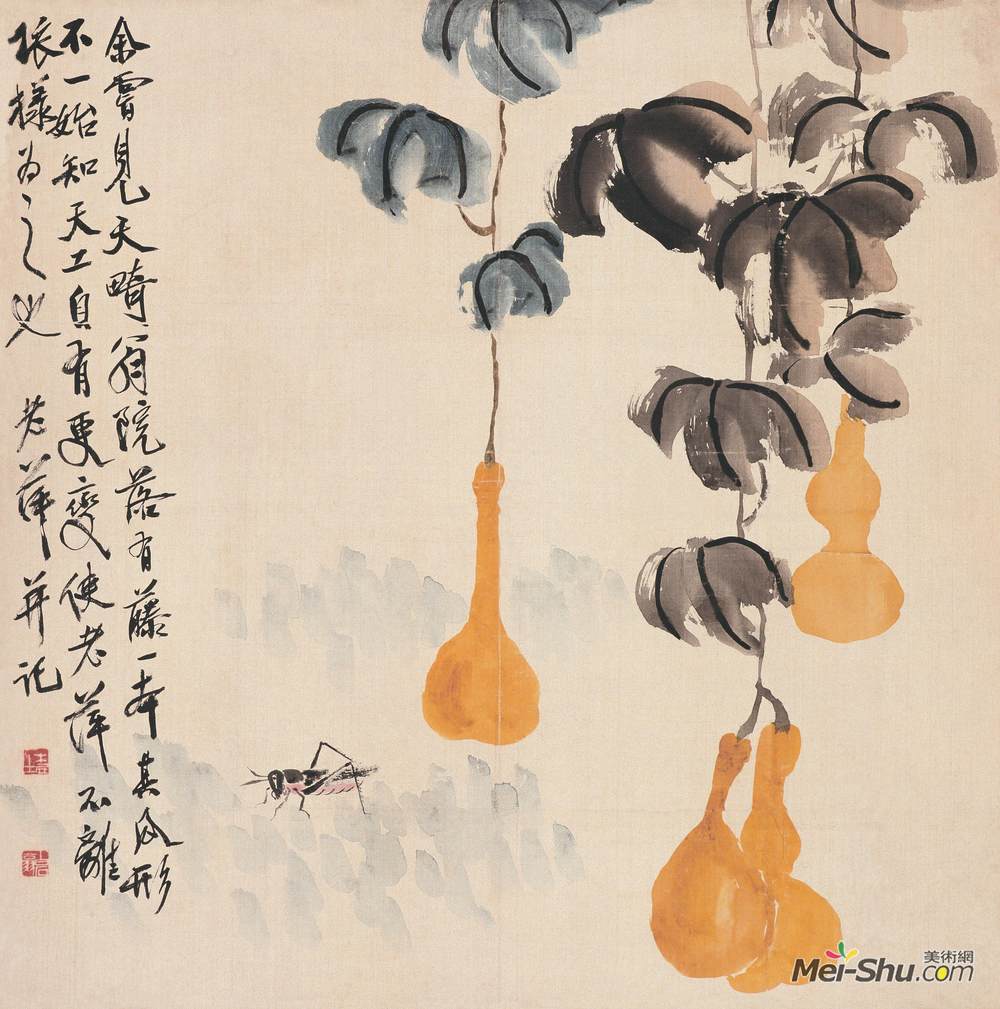 余嘗見天畸翁院落有藤一本其瓜形
不一始知天工自有更變使老萍不離
依樣為之也 老萍并記
美術網
Mei-Shu.com